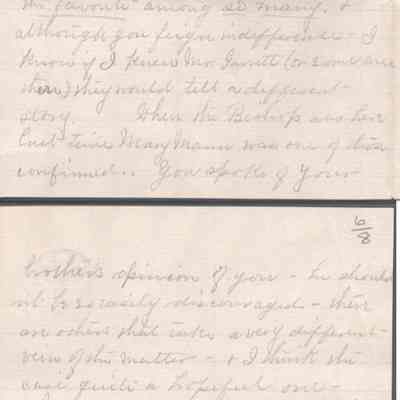 the favorite among so many. &
although you feign indifference - I
know if I knew Mr. (or some one
there) they would tell a different
story. When the Bishop was here
last time Mary Mann was one of those
confirmed. You spoke of your
6/8
brother's opinion of you - he should
not be so easily discouraged - there
are others that take a very different
view of the matter - & I think the
case quite a hopeful one -